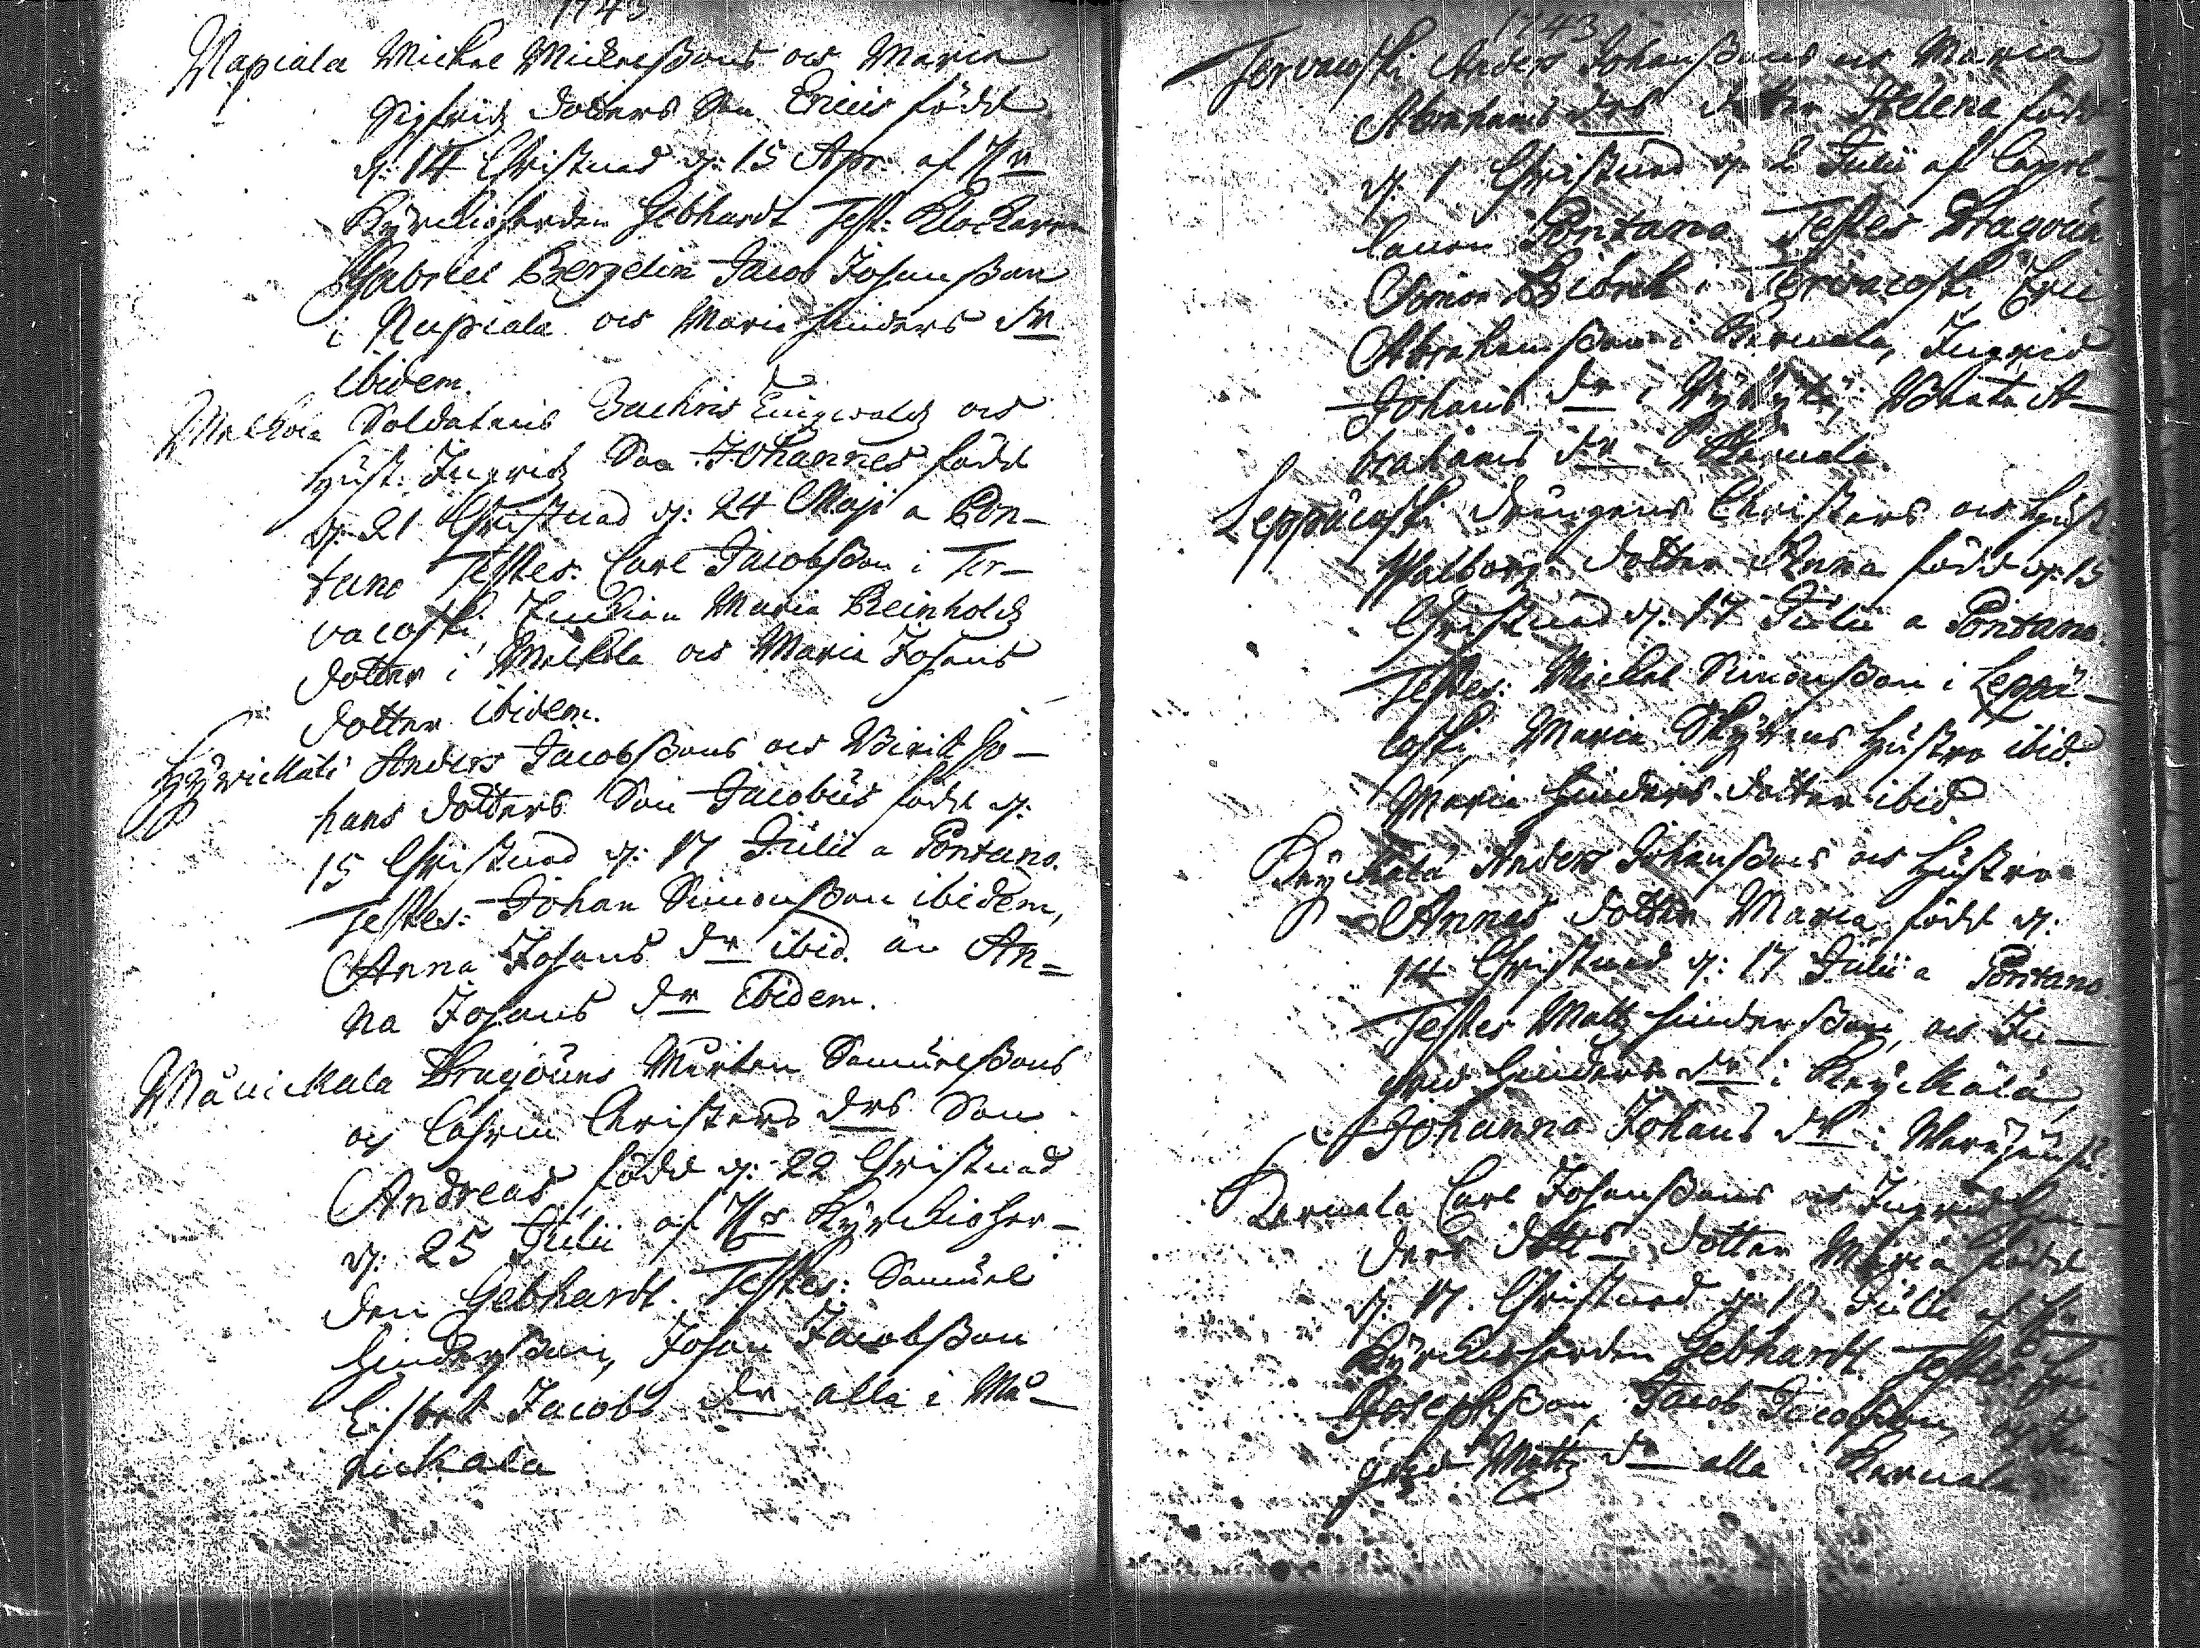 1743
Napiala Michel Michelssons och Maria
Sigfridz dotters Son Ericus född
d: 14 Christnad d: 15 Apr: af H:r
Kyrckioherden Gebhardt Test: Klockaren
Gabriel Bergelin Jacob Johansson
i Napiala och Maria Hinders dr
ibidem.
Melkola Soldatens Zachris Engwalds och
Hust: Ingridz Son Johannes född
d: 21 Christnad d: 24 Maji a Pon-
tano Testes: Carl Jacobsson i Ter-
vacoski, Maria Reinholdz
dotter i Melkola och Maria Johans
dotter ibidem.
Hyrickälä Anders Jacobssons och Birit Jo-
hans dotters Son Jacobus född d:
15 Christnad d: 17 Julii a Pontano.
Testes: Johan Simonsson ibidem,
Anna Johans dr ibid. än An-
na Johans dr Ibidem.
Månickala Dragouns Mårten Samuelssons
och Cahrin Christers drs Son
Andreas född d: 22 Christnad
d: 25 Julii af H:r Kyrckioher-
den Gebhardt. Testes: Samuel
Hindersson, Johan Jacobsson
Lisbet Jacobs dr alla i Må-
nickala
1743
Tervacoski Anders Johanssons och Maria
Abrahams drs dotter Helena född
d: 1 Christnad d: 2 Julii af Capel-
lanen Pontano Testes Dragoun
Simon Biörck i Tervacoski, Eric
Abrahamsson i Kernala, Ingrid
Johans dr i, Beata A-
brahams dr i Kernala.
Leppäcoski drängens Christers och Hust.
Walborg. dotter Anna född d: 15
Christnad d: 17 Julii a Pontano.
Testes: Michel Simonsson i Leppä-
coski, Maria Skyttens Hustro ibid.
Maria Hinders dotter ibid.
Reyckälä Anders Johanssons och Hustro
Annas dotter Maria född d:
14 Christnad d: 17 Julii a Pontano.
Testes Matz Hindersson, och In-
grid Hinders dr i Reyckälä,
Johanna Johans dr i
Kernala Carl Johanssons och Ingrid Hin-
ders dotters dotter Maria född
d: 17. Christnad d: 19 Julii af H:r
Kyrckioherden Gebhardt. Testes
Josephsson, Jacob Jacobsson, och In-
grid Mattz dr alla i Kernala